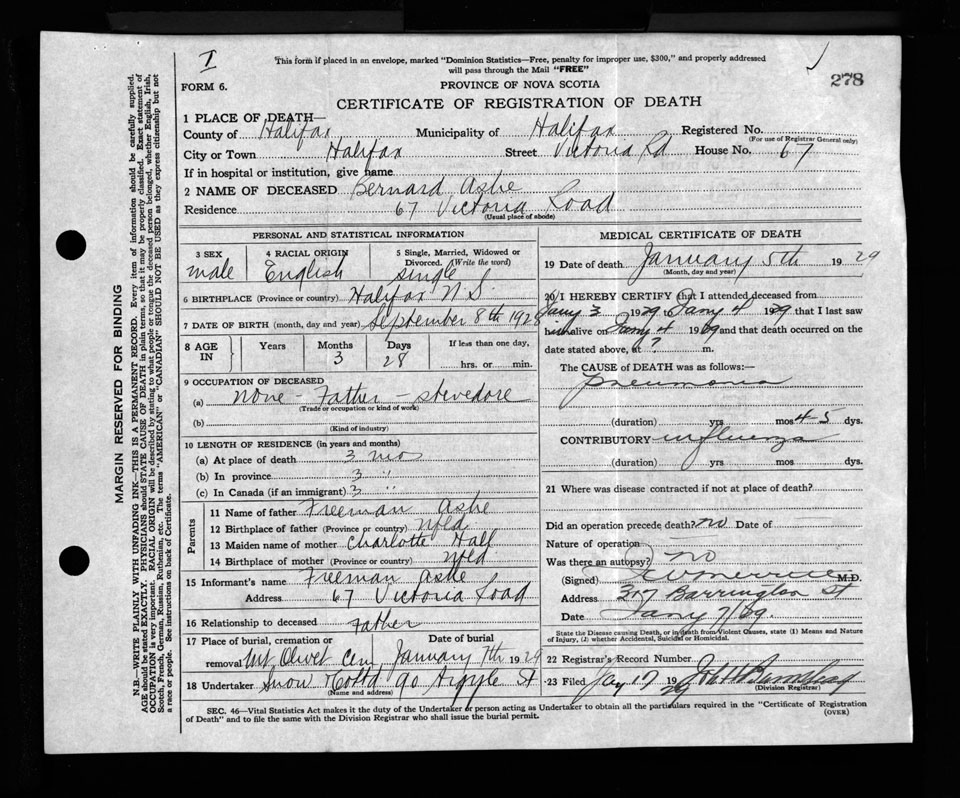 I
This form if placed in an envelope, marked "Dominion Statistics—Free, penalty for improper use, $300," and properly addressed
will pass through the Mail "FREE"
278
FORM 6.
PROVINCE OF NOVA SCOTIA
CERTIFICATE OF REGISTRATION OF DEATH
1 PLACE OF DEATH—
County of Halifax Municipality of Halifax Registered No.
(For use of Registrar General only)
City or Town Halifax Street Victoria Rd House No. 67
If in hospital or institution, give name
2 NAME OF DECEASED Bernard Ashe
Residence 67 Victoria Road
(Usual place of abode)
PERSONAL AND STATISTICAL INFORMATION
3 SEX male
4 RACIAL ORIGIN English
5 Single, Married, Widowed or Divorced. (Write the word) single
6 BIRTHPLACE (Province or country) Halifax N.S.
7 DATE OF BIRTH (month, day and year) September 8th 1928
8 AGE IN Years Months 3 Days 28 If less than one day, hrs. or min.
9 OCCUPATION OF DECEASED
(a) None - Father - stevedore
(Trade or occupation or kind of work)
(b)
(Kind of industry)
10 LENGTH OF RESIDENCE (in years and months)
(a) At place of death 3 mos
(b) In province 3 "
(c) In Canada (if an immigrant) 3 "
Parents
11 Name of father Freeman Ashe
12 Birthplace of father (Province or country) Nfld
13 Maiden name of mother Charlotte Hall
14 Birthplace of mother (Province or country) Nfld
15 Informant's name Freeman Ashe
Address 67 Victoria Road
16 Relationship to deceased Father
17 Place of burial, cremation or Date of burial
removal Mt Olivet Cem January 7th 1929
18 Undertaker Snow & Co Ltd 90 Argyle St
(Name and address)
MEDICAL CERTIFICATE OF DEATH
19 Date of death January 5th 1929
(Month, day and year)
20 I HEREBY CERTIFY that I attended deceased from
Jany 3 1929 to Jany 4 1929 that I last saw
alive on Jany 4 1929 and that death occurred on the
date stated above, at ? m.
The CAUSE of DEATH was as follows:—
pneumonia
(duration) yrs mos 4-5 dys.
CONTRIBUTORY influenza
(duration) yrs mos dys.
21 Where was disease contracted if not at place of death?
Did an operation precede death? no Date of
Nature of operation
Was there an autopsy? no
(Signed) M.D.
Address 317 Barrington St
Date Jany 7/29.
State the Disease causing Death, or in death from Violent Causes, state (1) Means and Nature
of Injury, (2) whether Accidental, Suicidal or Homicidal.
22 Registrar's Record Number
23 Filed Jany 17 1929
(Division Registrar)
SEC. 46—Vital Statistics Act makes it the duty of the Undertaker or person acting as Undertaker to obtain all the particulars required in the "Certificate of Registration
of Death" and to file the same with the Division Registrar who shall issue the burial permit.
(OVER)
MARGIN RESERVED FOR BINDING
N.B.—WRITE PLAINLY WITH UNFADING INK—THIS IS A PERMANENT RECORD. Every item of information should be carefully supplied.
AGE should be stated EXACTLY. PHYSICIANS should STATE CAUSE OF DEATH in plain terms, so that it may be properly classified. Exact statement of
OCCUPATION is very important. RACIAL ORIGIN will be described by stating to what people or tongue the deceased person belonged, whether English, Irish,
Scotch, French, German, Russian, Ruthenian, etc. The terms "AMERICAN" or "CANADIAN" SHOULD NOT BE USED as they express citizenship but not
a race or people. See instructions on back of Certificate.